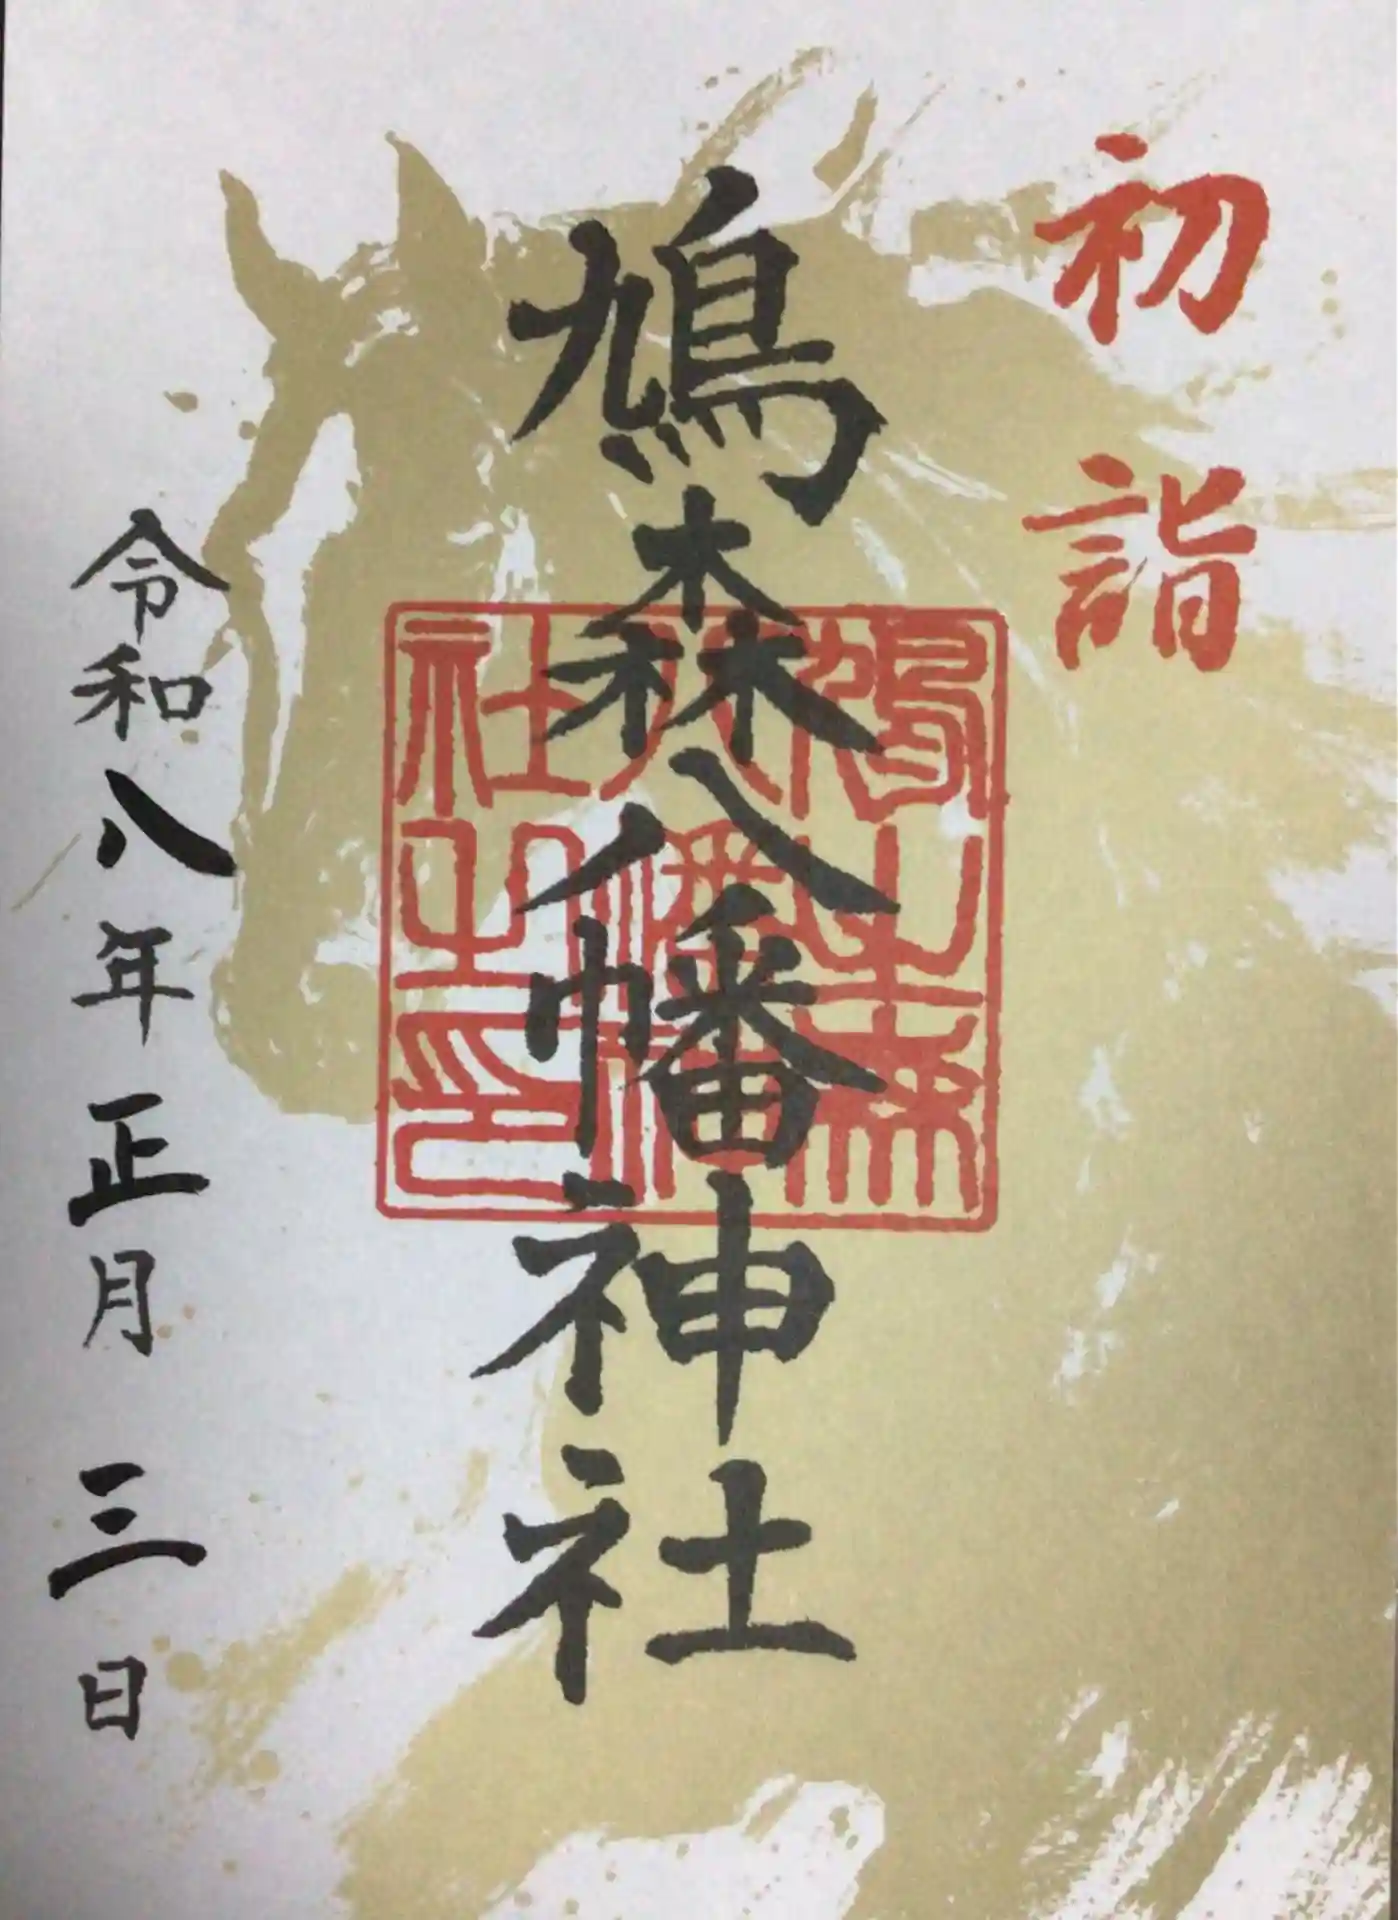 初詣
鳩森八幡神社
鳩之森八幡神社之印
令和八年正月三日